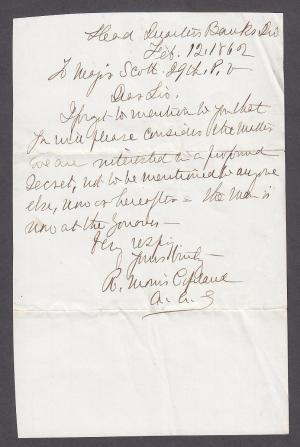 Head Quarters Banks Div
Feb. 12. 1862
To Major Scott 29th P. V
Dear Sir.
I forgot to mention to you that
you will please consider the matter
we are interested in a profound
secret, not to be mentioned to anyone
else, now or hereafter = the Man is
now at the Zouaves —
Very respy
Yours truly
R. Morris Copeland
A. A. G